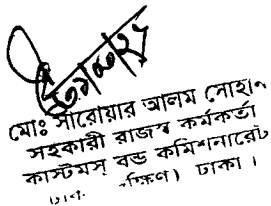 মোঃ সারোয়ার আলম সোহান
সহকারী রাজস্ব কর্মকর্তা
কাস্টমস্ বন্ড কমিশনারেট
ঢাকা।